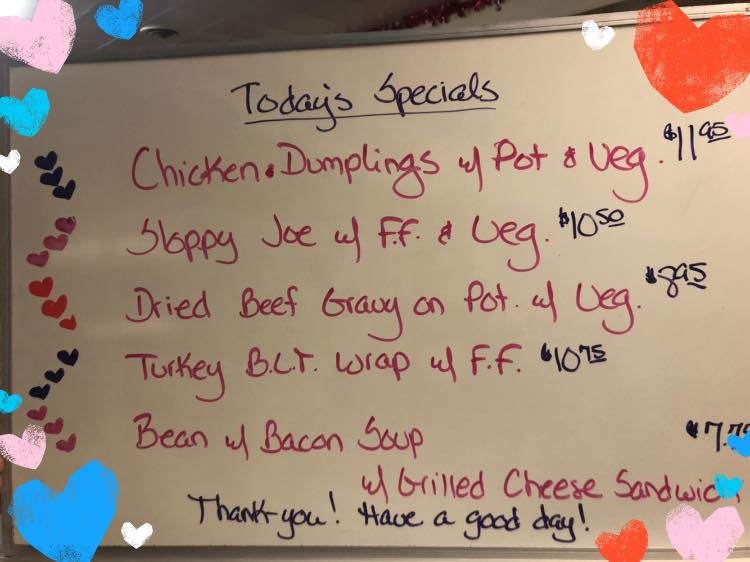 Today's Specials
Chicken & Dumplings w/ Pot & Veg. $11.95
Sloppy Joe w/ F.F. & Veg. $10.50
Dried Beef Gravy on Pot. w/ Veg. $8.95
Turkey B.L.T. Wrap w/ F.F. $10.75
Bean w/ Bacon Soup
w/ Grilled Cheese
Thank you! Have a good day!